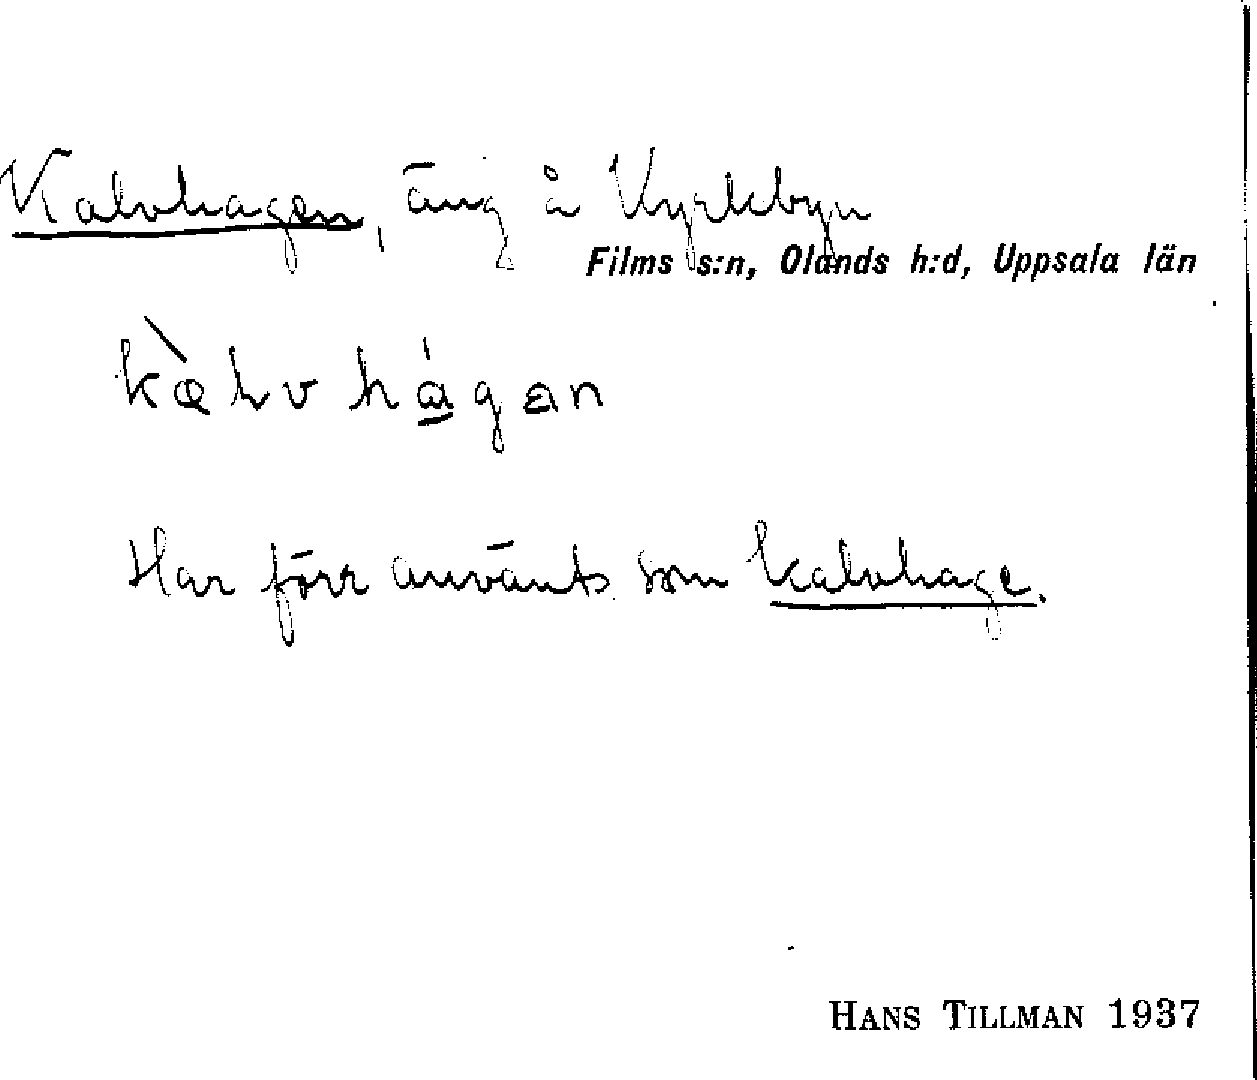 Kalvhagen, äng å Kyrkbyn
Films s:n, Olands h:d, Uppsala län
kàlvhágan
Har förr använts som kalvhage.
HANS TILLMAN 1937